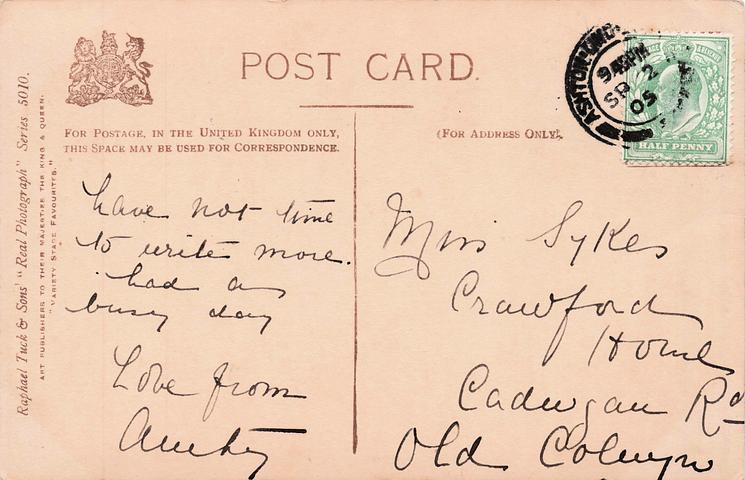 POST CARD.
FOR POSTAGE, IN THE UNITED KINGDOM ONLY,
THIS SPACE MAY BE USED FOR CORRESPONDENCE.
(FOR ADDRESS ONLY).
Raphael Tuck & Sons' "Real Photograph" Series 5010.
ART PUBLISHERS TO THEIR MAJESTIES THE KING & QUEEN.
"VARIETY STAGE FAVOURITES."
9 45PM
SP 2
05
HALF PENNY
have not time
to write more.
had a
busy day
Love from
Miss Sykes
Crawford
Home
Cadwgan Rd
Old Colwyn